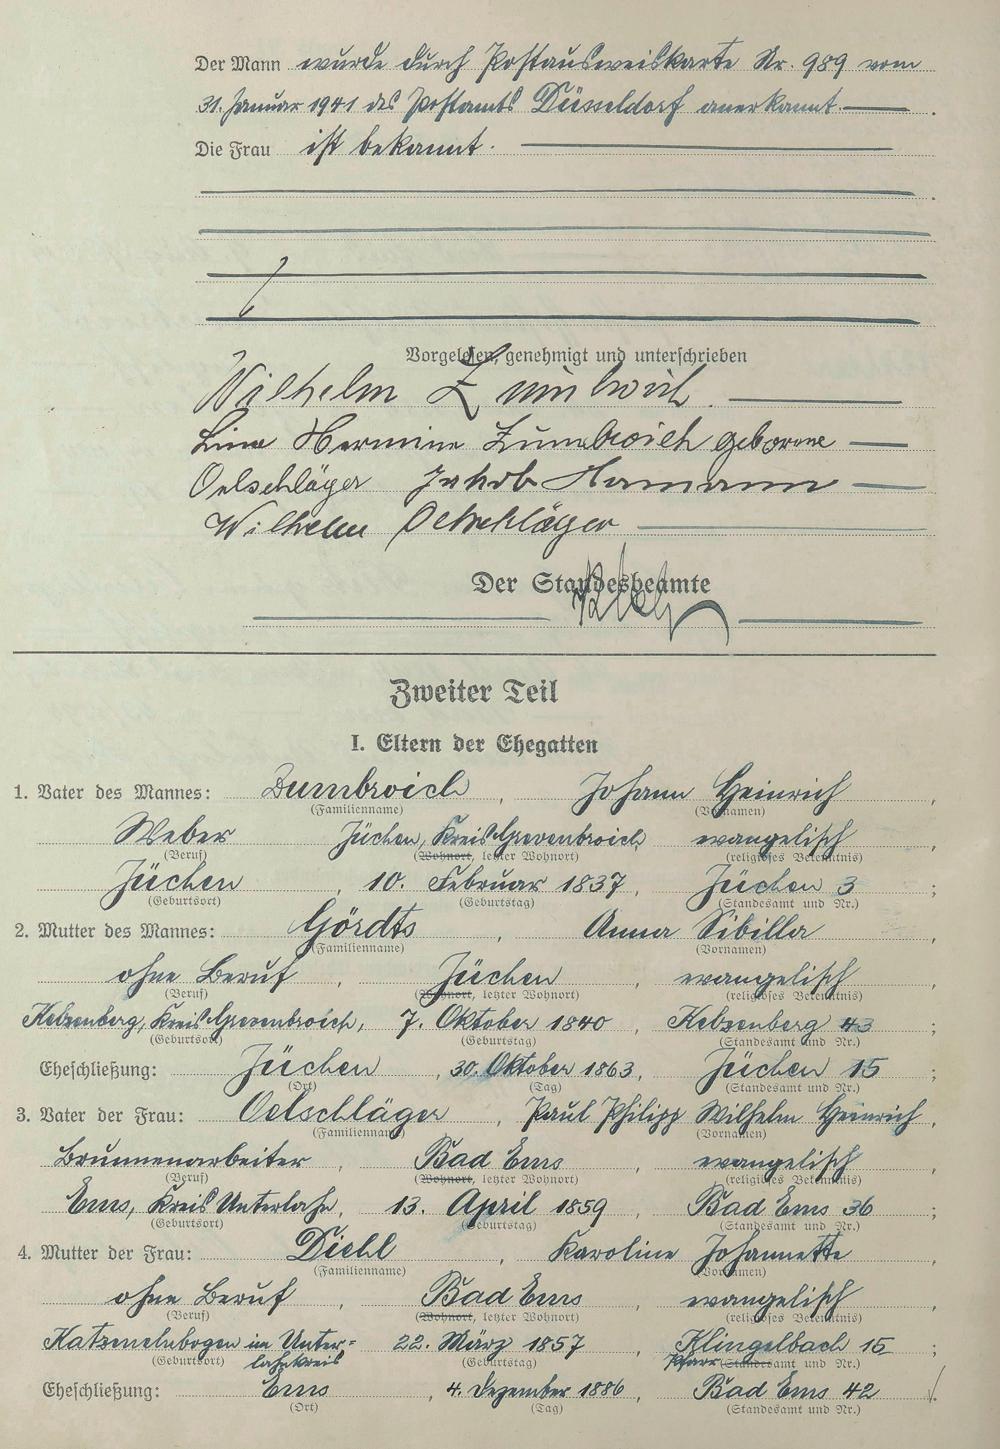 Der Mann wurde durch Postausweiskarte Nr. 989 vom
31. Januar 1941 des Postamts Düsseldorf anerkannt.
Die Frau ist bekannt.
Vorgelesen, genehmigt und unterschrieben
Wilhelm Zumbroich.
Line Hermine Zumbroich geborene
Oelschläger Jakob Hamann
Wilhelm Oelschläger
Der Standesbeamte
Zweiter Teil
I. Eltern der Ehegatten
1. Vater des Mannes: Zumbroich, Johann Heinrich,
(Familienname) (Vornamen)
Weber Jüchen, Kreis Grevenbroich, evangelisch,
(Beruf) (Wohnort, letzter Wohnort) (religiöses Bekenntnis)
Jüchen, 10. Februar 1837, Jüchen 3;
(Geburtsort) (Geburtstag) (Standesamt und Nr.)
2. Mutter des Mannes: Gördts, Anna Sibilla,
(Familienname) (Vornamen)
ohne Beruf, Jüchen, evangelisch,
(Beruf) (Wohnort, letzter Wohnort) (religiöses Bekenntnis)
Kelzenberg, Kreis Grevenbroich, 7. Oktober 1840, Kelzenberg 43;
(Geburtsort) (Geburtstag) (Standesamt und Nr.)
Eheschließung: Jüchen, 30. Oktober 1863, Jüchen 15;
(Ort) (Tag) (Standesamt und Nr.)
3. Vater der Frau: Oelschläger, Paul Philipp Wilhelm Heinrich,
(Familienname) (Vornamen)
Brunnenarbeiter, Bad Ems, evangelisch,
(Beruf) (Wohnort, letzter Wohnort) (religiöses Bekenntnis)
Ems, Kreis Unterlahn, 13. April 1859, Bad Ems 36;
(Geburtsort) (Geburtstag) (Standesamt und Nr.)
4. Mutter der Frau: Diehl, Karoline Johannette,
(Familienname) (Vornamen)
ohne Beruf, Bad Ems, evangelisch,
(Beruf) (Wohnort, letzter Wohnort) (religiöses Bekenntnis)
Katzenelnbogen im Unter= 22. März 1857, Klingelbach 15;
(Geburtsort) lahnkreis (Geburtstag) Pfarr (Standesamt und Nr.)
Eheschließung: Ems, 4. Dezember 1886, Bad Ems 42.
(Ort) (Tag) (Standesamt und Nr.)